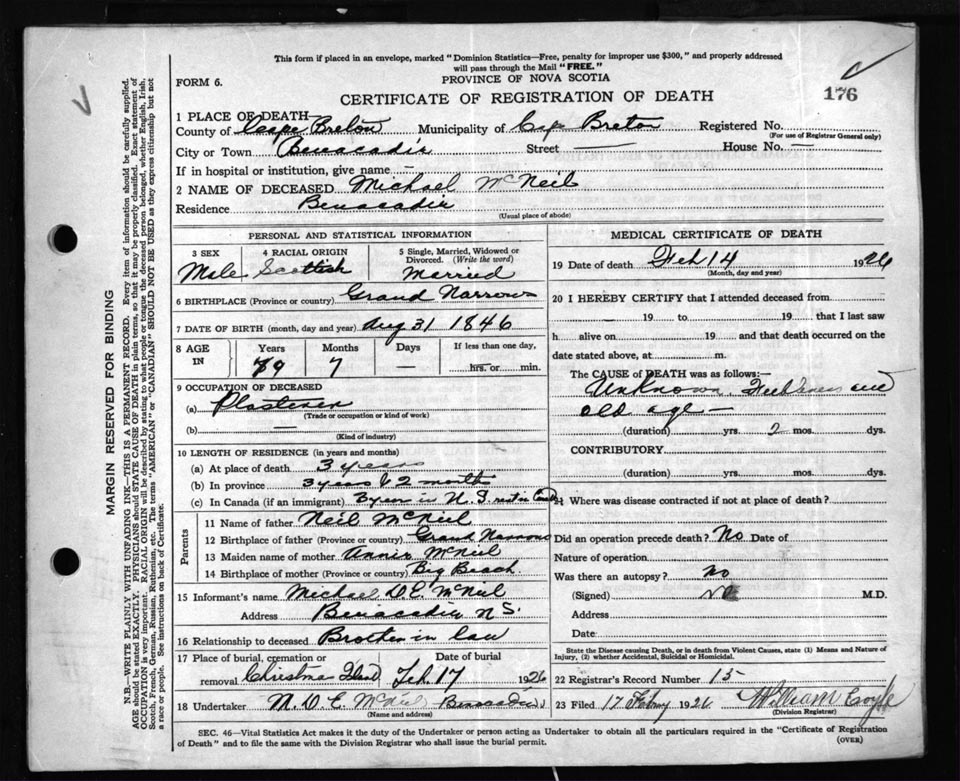 This form if placed in an envelope, marked "Dominion Statistics—Free, penalty for improper use $300," and properly addressed
will pass through the Mail "FREE."
FORM 6.
PROVINCE OF NOVA SCOTIA
176
CERTIFICATE OF REGISTRATION OF DEATH
1 PLACE OF DEATH—
County of Cape Breton Municipality of Cape Breton Registered No.
(For use of Registrar General only)
City or Town Benacadie Street — House No. —
If in hospital or institution, give name —
2 NAME OF DECEASED Michael McNeil
Residence Benacadie
(Usual place of abode)
PERSONAL AND STATISTICAL INFORMATION
3 SEX Male
4 RACIAL ORIGIN Scottish
5 Single, Married, Widowed or Divorced. (Write the word) Married
6 BIRTHPLACE (Province or country) Grand Narrows
7 DATE OF BIRTH (month, day and year) Aug 31 1846
8 AGE IN Years 79 Months 7 Days — If less than one day, hrs. or min.
9 OCCUPATION OF DECEASED
(a) Plasterer
(Trade or occupation or kind of work)
(b) —
(Kind of industry)
10 LENGTH OF RESIDENCE (in years and months)
(a) At place of death 3 years
(b) In province 3 years & 2 months
(c) In Canada (if an immigrant) 3 year in N. S rest in
Parents
11 Name of father Neil McNeil
12 Birthplace of father (Province or country) Grand Narrows
13 Maiden name of mother Annie McNeil
14 Birthplace of mother (Province or country) Big Beach
15 Informant's name Michael D E McNeil
Address Benacadie N S.
16 Relationship to deceased Brother in law
17 Place of burial, cremation or removal Christmas Island Date of burial Feb. 17 1926
18 Undertaker M. D. E. McNeil Benacadie
(Name and address)
MEDICAL CERTIFICATE OF DEATH
19 Date of death Feb 14 1926
(Month, day and year)
20 I HEREBY CERTIFY that I attended deceased from
19 to 19 that I last saw
h alive on 19 and that death occurred on the
date stated above, at m.
The CAUSE of DEATH was as follows:—
Unknown. Feebleness and
old age —
(duration) yrs. 2 mos. dys.
CONTRIBUTORY
(duration) yrs. mos. dys.
21 Where was disease contracted if not at place of death?
Did an operation precede death? No Date of
Nature of operation
Was there an autopsy? No
(Signed) M.D.
Address
Date
State the Disease causing Death, or in death from Violent Causes, state (1) Means and Nature of
Injury, (2) whether Accidental, Suicidal or Homicidal.
22 Registrar's Record Number 15
23 Filed 17 1926 William Coyle
(Division Registrar)
SEC. 46—Vital Statistics Act makes it the duty of the Undertaker or person acting as Undertaker to obtain all the particulars required in the "Certificate of Registration
of Death" and to file the same with the Division Registrar who shall issue the burial permit.
(OVER)
MARGIN RESERVED FOR BINDING
N.B.—WRITE PLAINLY WITH UNFADING INK—THIS IS A PERMANENT RECORD. Every item of information should be carefully supplied.
AGE should be stated EXACTLY. PHYSICIANS should STATE CAUSE OF DEATH in plain terms, so that it may be properly classified. Exact statement of
OCCUPATION is very important. RACIAL ORIGIN will be described by stating to what people or tongue the deceased person belonged, whether English, Irish,
Scotch, French, German, Russian, Ruthenian, etc. The terms "AMERICAN" or "CANADIAN" SHOULD NOT BE USED as they express citizenship but not
a race or people. See instructions on back of Certificate.